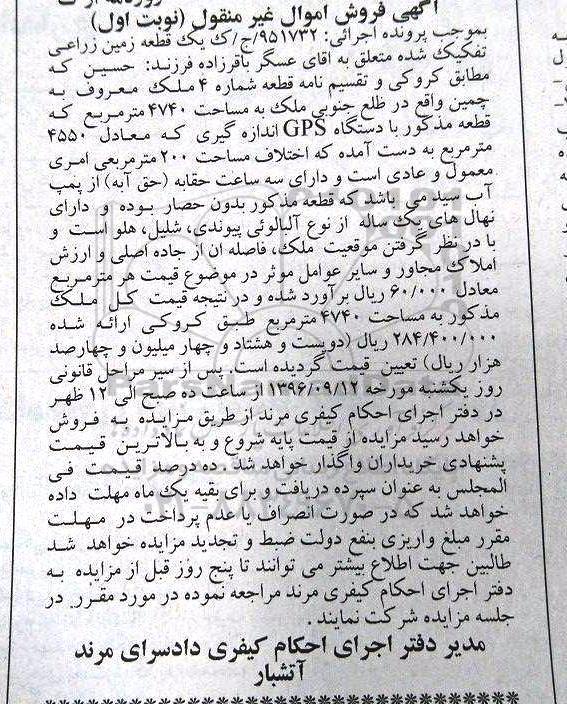 آگهی فروش اموال غیر منقول (نوبت اول)
بموجب پرونده اجرائی: ۹۵۱۷۳۲/ج/ک یک قطعه زمین زراعی
تفکیک شده متعلق به اقای عسگر باقرزاده فرزند: حسین که
مطابق کروکی و تقسیم نامه قطعه شماره ۴ ملک معروف به
چمین واقع در ظلع جنوبی ملک به مساحت ۴۷۴۰ مترمربع که
قطعه مذکور با دستگاه GPS اندازه گیری که معادل ۴۵۵۰
مترمربع به دست آمده که اختلاف مساحت ۲۰۰ مترمربعی امری
معمول و عادی است و دارای سه ساعت حقابه (حق آبه) از پمپ
آب سید می باشد که قطعه مذکور بدون حصار بوده و دارای
نهال های یک ساله از نوع آلبالوئی پیوندی، شلیل، هلو است و
با در نظر گرفتن موقعیت ملک، فاصله ان از جاده اصلی و ارزش
املاک مجاور و سایر عوامل موثر در موضوع قیمت هر مترمربع
معادل ۶۰/۰۰۰ ریال برآورد شده و در نتیجه قیمت کل ملک
مذکور به مساحت ۴۷۴۰ مترمربع طبق کروکی ارائه شده
۲۸۴/۴۰۰/۰۰۰ ریال (دویست و هشتاد و چهار میلیون و چهارصد
هزار ریال) تعیین قیمت گردیده است. پس از سیر مراحل قانونی
روز یکشنبه مورخه ۱۳۹۶/۰۹/۱۲ از ساعت ده صبح الی ۱۲ ظهر
در دفتر اجرای احکام کیفری مرند از طریق مزایده به فروش
خواهد رسید مزایده از قیمت پایه شروع و به بالاترین قیمت
پشنهادی خریداران واگذار خواهد شد . ده درصد قیمت فی
المجلس به عنوان سپرده دریافت و برای بقیه یک ماه مهلت داده
خواهد شد که در صورت انصراف یا عدم پرداخت در مهلت
مقرر مبلغ واریزی بنفع دولت ضبط و تجدید مزایده خواهد شد
طالبین جهت اطلاع بیشتر می توانند تا پنج روز قبل از مزایده به
دفتر اجرای احکام کیفری مرند مراجعه نموده در مورد مقرر در
جلسه مزایده شرکت نمایند .
مدیر دفتر اجرای احکام کیفری دادسرای مرند
آتشبار